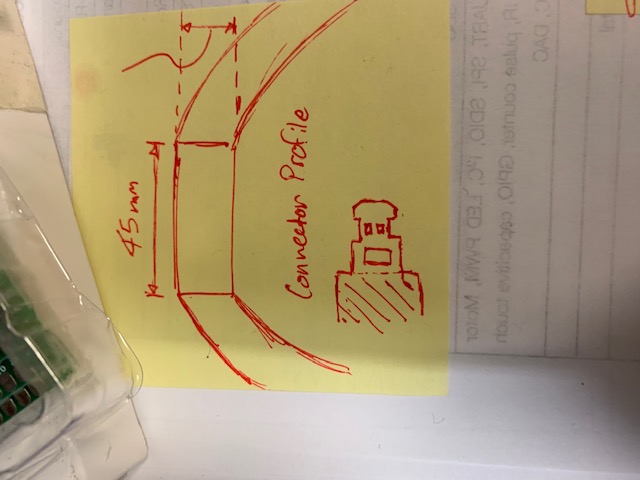 45mm
Connector Profile
UART, SPI, SDIO, I²C, LED PWM, Motor
IR, pulse counter, GPIO, capacitive touch
C, DAC